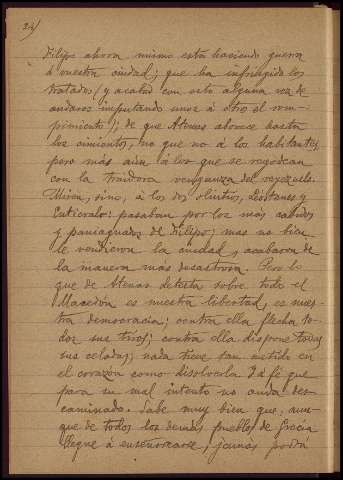 24)
Filipo ahora mismo está haciendo guerra
á vuestra ciudad; que ha infringido los
tratados (y acabad con esto alguna vez de
andaros imputando unos á otro el rom-
pimiento); de que Atenas aborrece hasta
los cimientos, no que no á los habitantes,
pero más aún á los que se regodean
con la traidora venganza del reyezuelo.
Miren, sino, á los dos olintios, Léostanes y
Euticrato: pasaban por los más sabidos
y paniaguados de Filipo; mas no bien
le vendieron la ciudad, acabaron de
la manera más desastrosa. Pero lo
que de Atenas detesta sobre todo el
Macedon es nuestra libertad, es nues-
tra democracia; contra ella flecha to-
dos sus tiros; contra ella dispone todas
sus celadas; nada tiene tan metido en
el corazón como disolverla. Y á fé que
para su mal intento no anda des-
caminado. Sabe muy bien que, aun-
que de todos los demás pueblos de Grecia
llegue á enseñorearse, jamás podrá